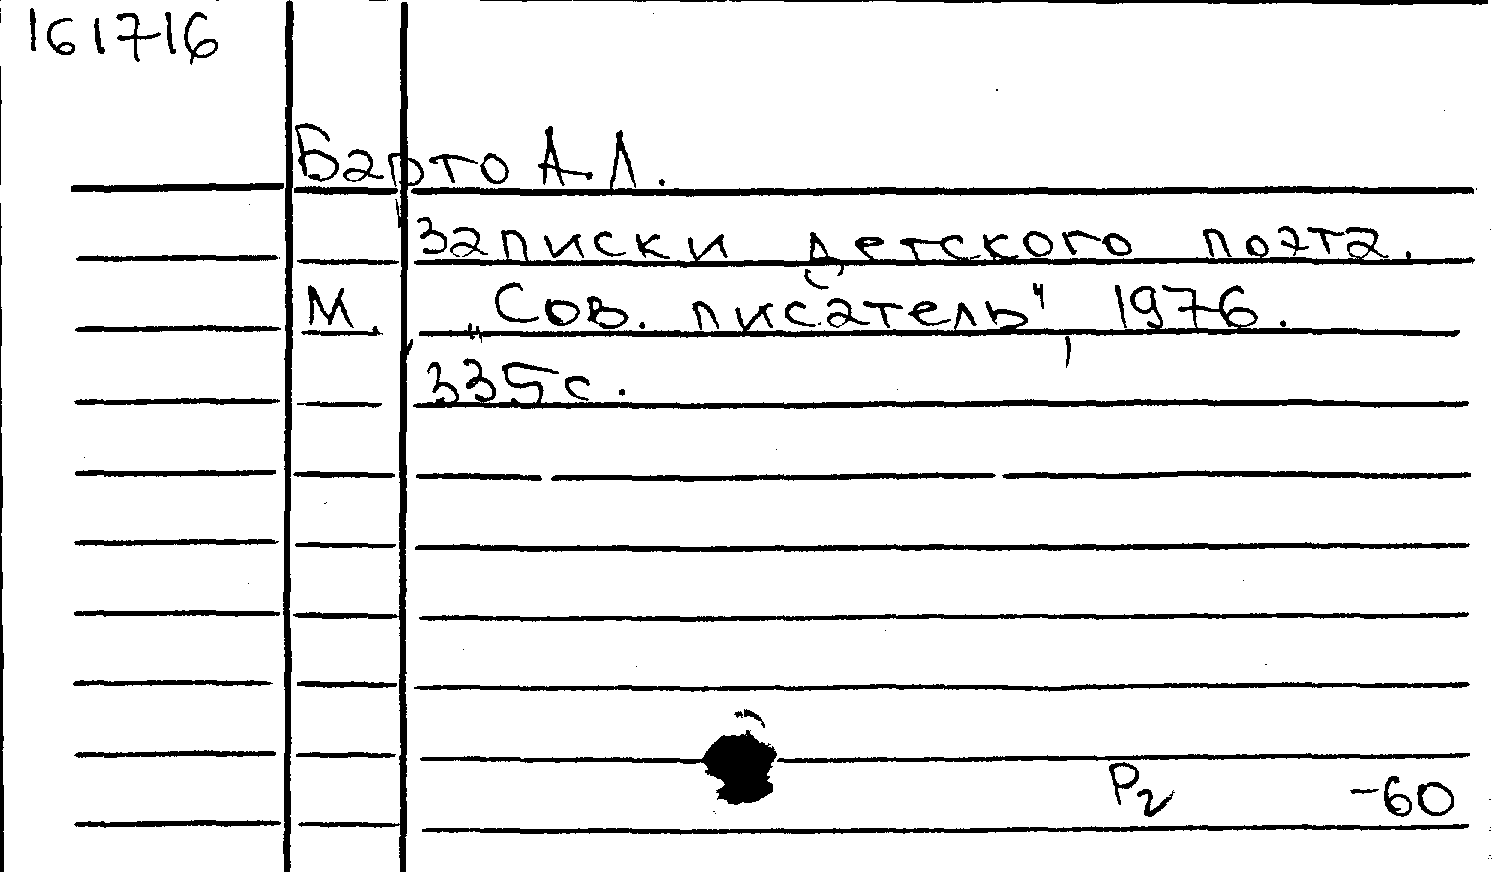 161716
Барто А.Л.
Записки детского поэта.
М. „Сов. писатель", 1976.
335с.
Р2 -60